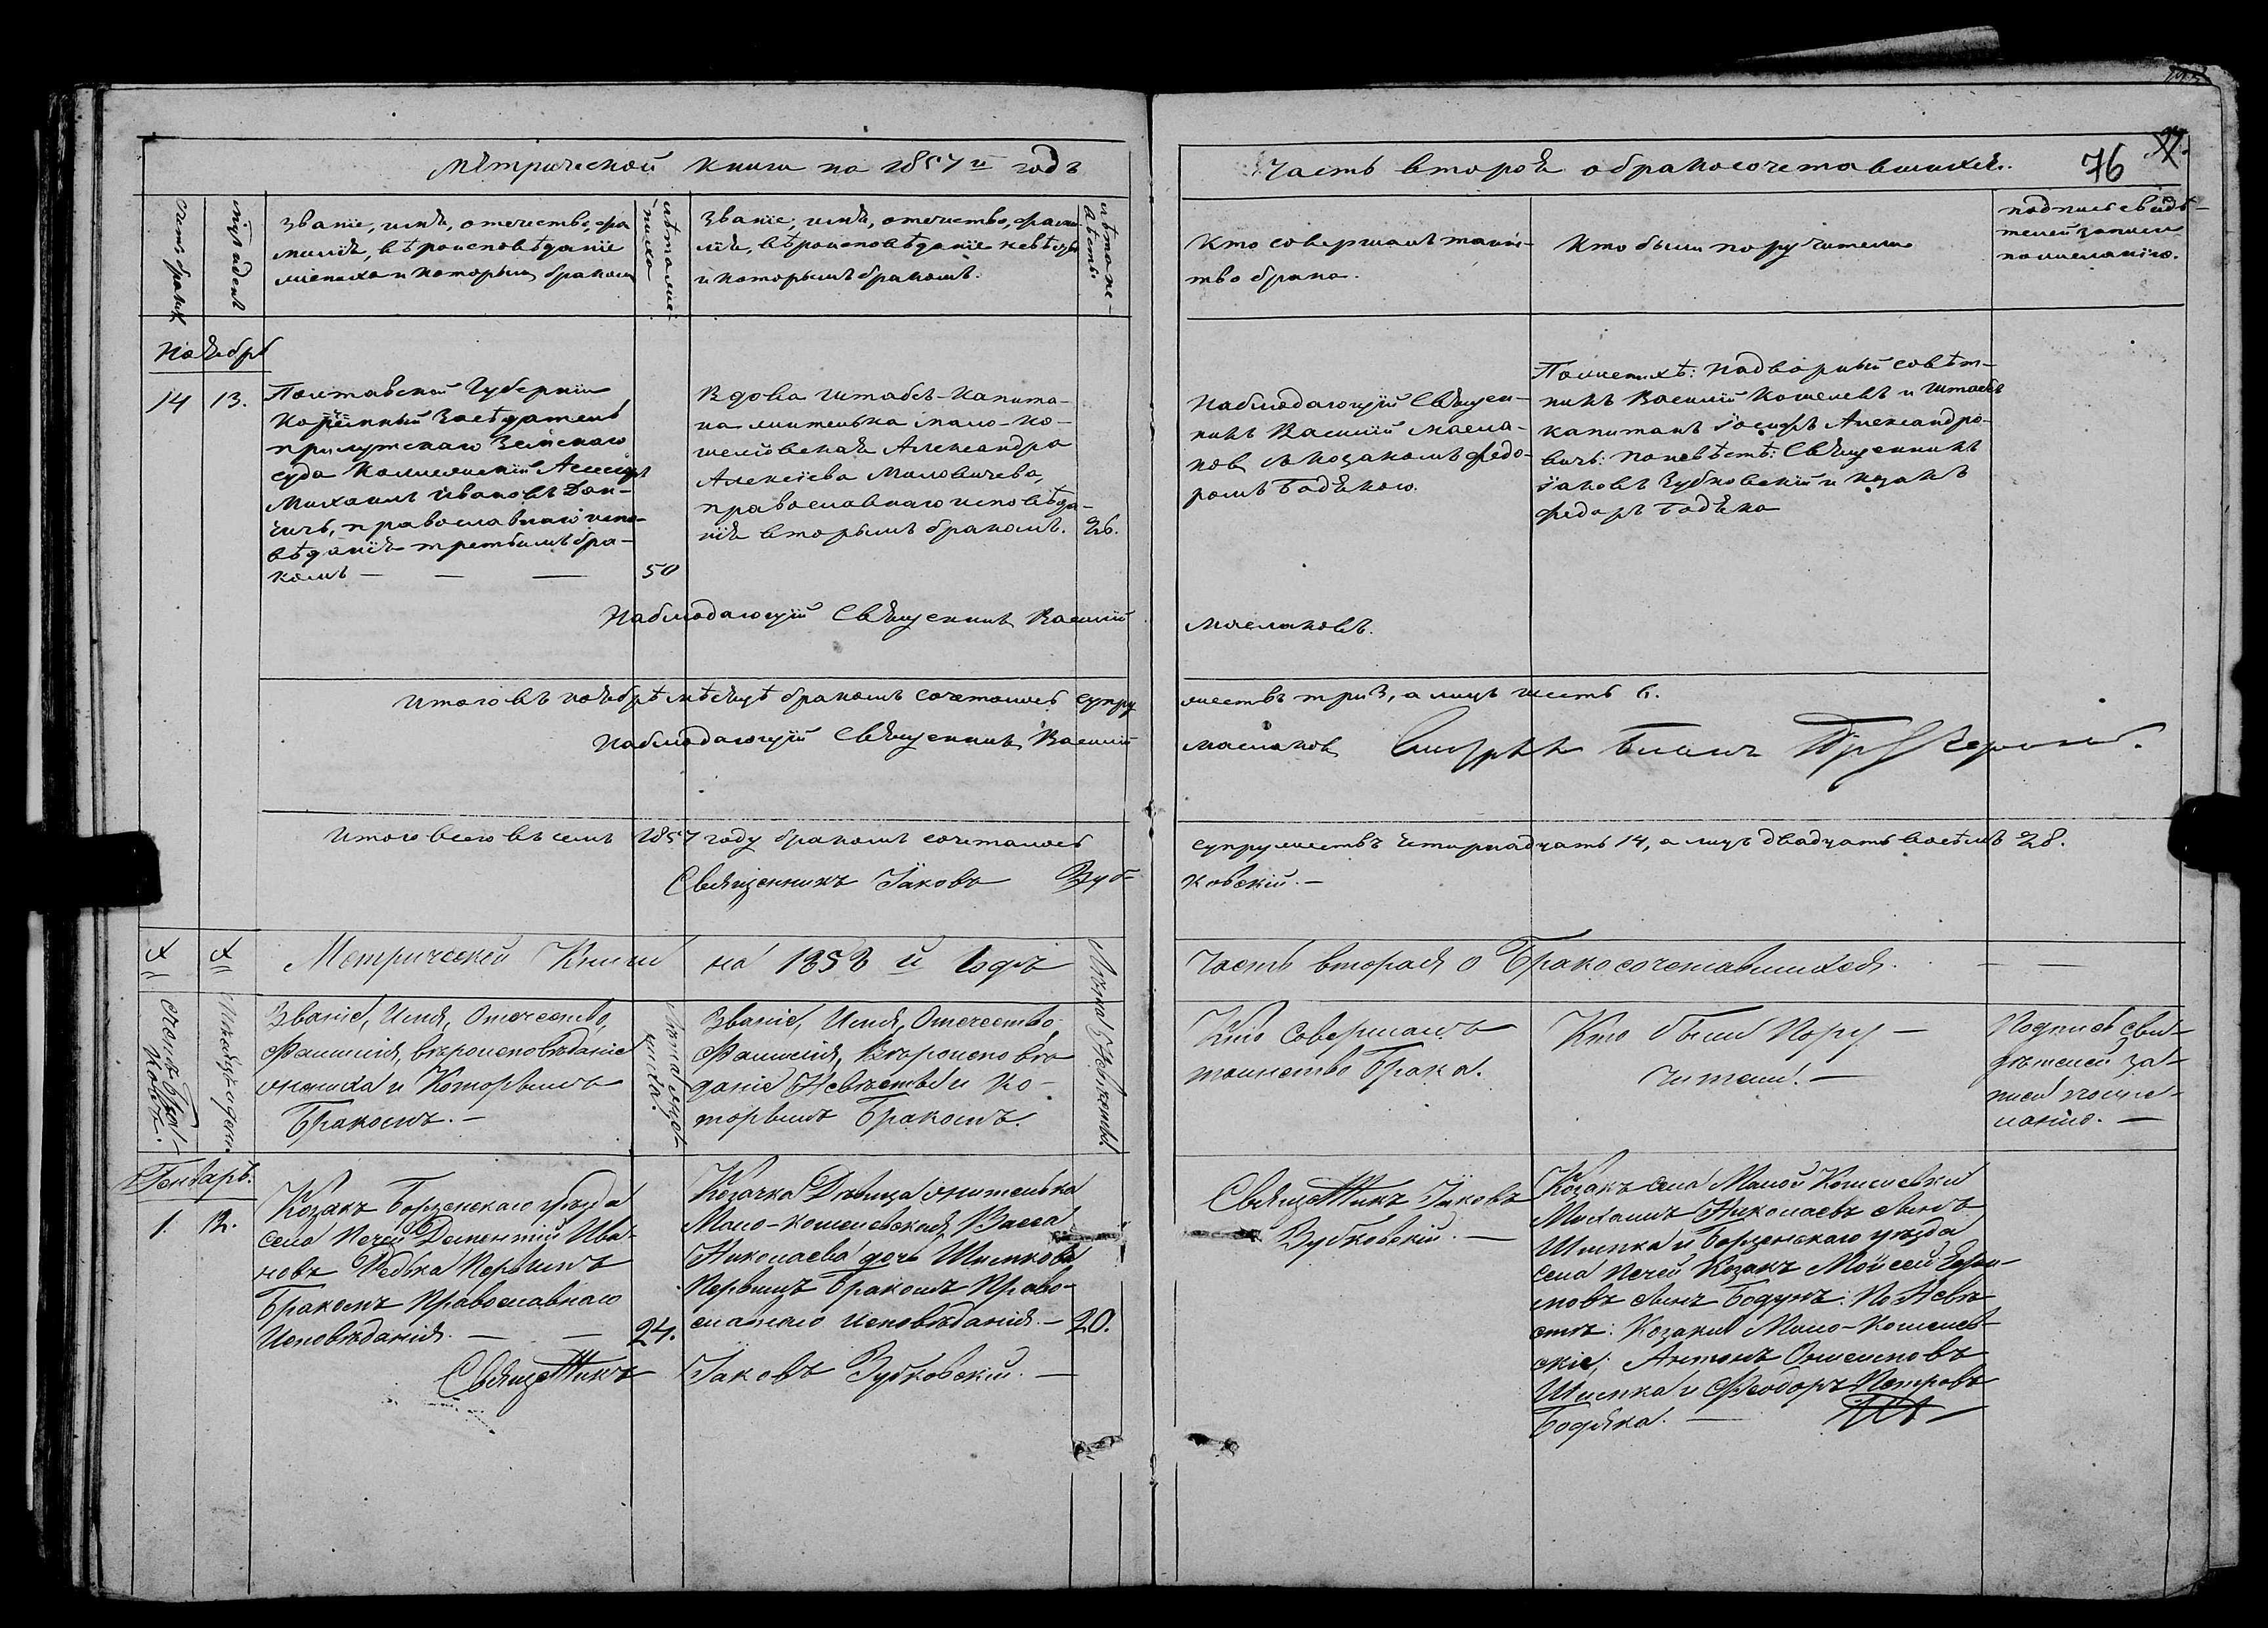 76
Метрической книги на 1857й годъ
Часть вторая о бракосочетавшихся.
счетъ браковъ
Званіе, имя, отечество, фа
милія, вѣроисповѣданіе
жениха и которымъ бракомъ
лѣта же-
ниха
Званіе, имя, отечество, фами
лія, вѣроисповѣданіе невѣсты
и которымъ бракомъ.
лѣта не-
вѣсты
Кто совершалъ таин-
тво брака.
Кто были поручители
подпись свидѣ-
телей записи
по желанію.
Ноябрь
14
13.
Полтавской Губерніи
Коренный Засѣдатель
прилукскаго Земскаго
суда Коллежскій Асессоръ
Михаилъ Ивановъ Дан-
чичъ, православнаго испо-
вѣданія третьимъ бра-
комъ — — —
50
Вдова Штабсъ-Капита-
на жителька мало-ко-
шелевская Александра
Алексіева Миловичева,
православнаго исповѣда-
нія вторымъ бракомъ.
26.
Наблюдающій Священ-
никъ Василій Масла-
ковъ съ козакомъ Федо-
ромъ Бадякою.
По женихѣ: надворный совѣт-
никъ Василій Кошелевъ и штабсъ
капитанъ Іосифъ Александро-
вичъ: по невѣстѣ: Священникъ
Іаковъ Зубковскій и козакъ
Федоръ Бодяка
Наблюдающій Священникъ Василій
Маслаковъ.
Итого въ ноябрѣ мѣсяцѣ бракомъ сочеталось супру
жествъ три 3, а лицъ шесть 6.
Наблюдающій Священникъ Василій
Маслаковъ
Итого всего въ семъ 1857 году бракомъ сочеталось
супружествъ четырнадцать 14, а лицъ двадцать восемь 28.
Священникъ Іаковъ Зуб-
ковскій. —
Метрической Книги на 1858 й Годъ
Часть вторая о Бракосочетавшихся. — —
Мѣсяцъ и день.
Званіе, Имя, Отечество,
Фамилія, вѣроисповѣданіе
жениха и Которымъ
Бракомъ. —
Лѣта жени-
ха.
Званіе, Имя, Отечество
Фамилія, Вѣроисповѣ
даніе Невѣсты и Ко-
торымъ Бракомъ.
Лѣта Невѣсты
Кто Совершалъ
таинство Брака.
Кто были Пору-
чители. —
Подпись сви-
дѣтелей за-
писи по же-
ланію. —
Генварь.
1.
12.
Козакъ Борзенскаго уѣзда
села Печей Дементій Ива-
новъ Редька Первымъ
Бракомъ Православнаго
Исповѣданія. — —
24.
Козачка Дѣвица жителька
Мало-кошелевская Васса
Николаева дочь Шимкова
Первымъ Бракомъ Право-
славнаго исповѣданія. —
20.
Священникъ Іаковъ
Зубковскій. —
Козакъ села Малой Кошелевки
Михаилъ Николаевъ сынъ
Шимка и Борзенскаго уѣзда
села Печей Козакъ Мойсей
сынъ Бодунъ: По Невѣ
стѣ: Козаки Мало-Кошелев-
скіе: Антонъ
Шимка и Феодоръ Петровъ
Бодяка. —
Священникъ Іаковъ Зубковскій. —